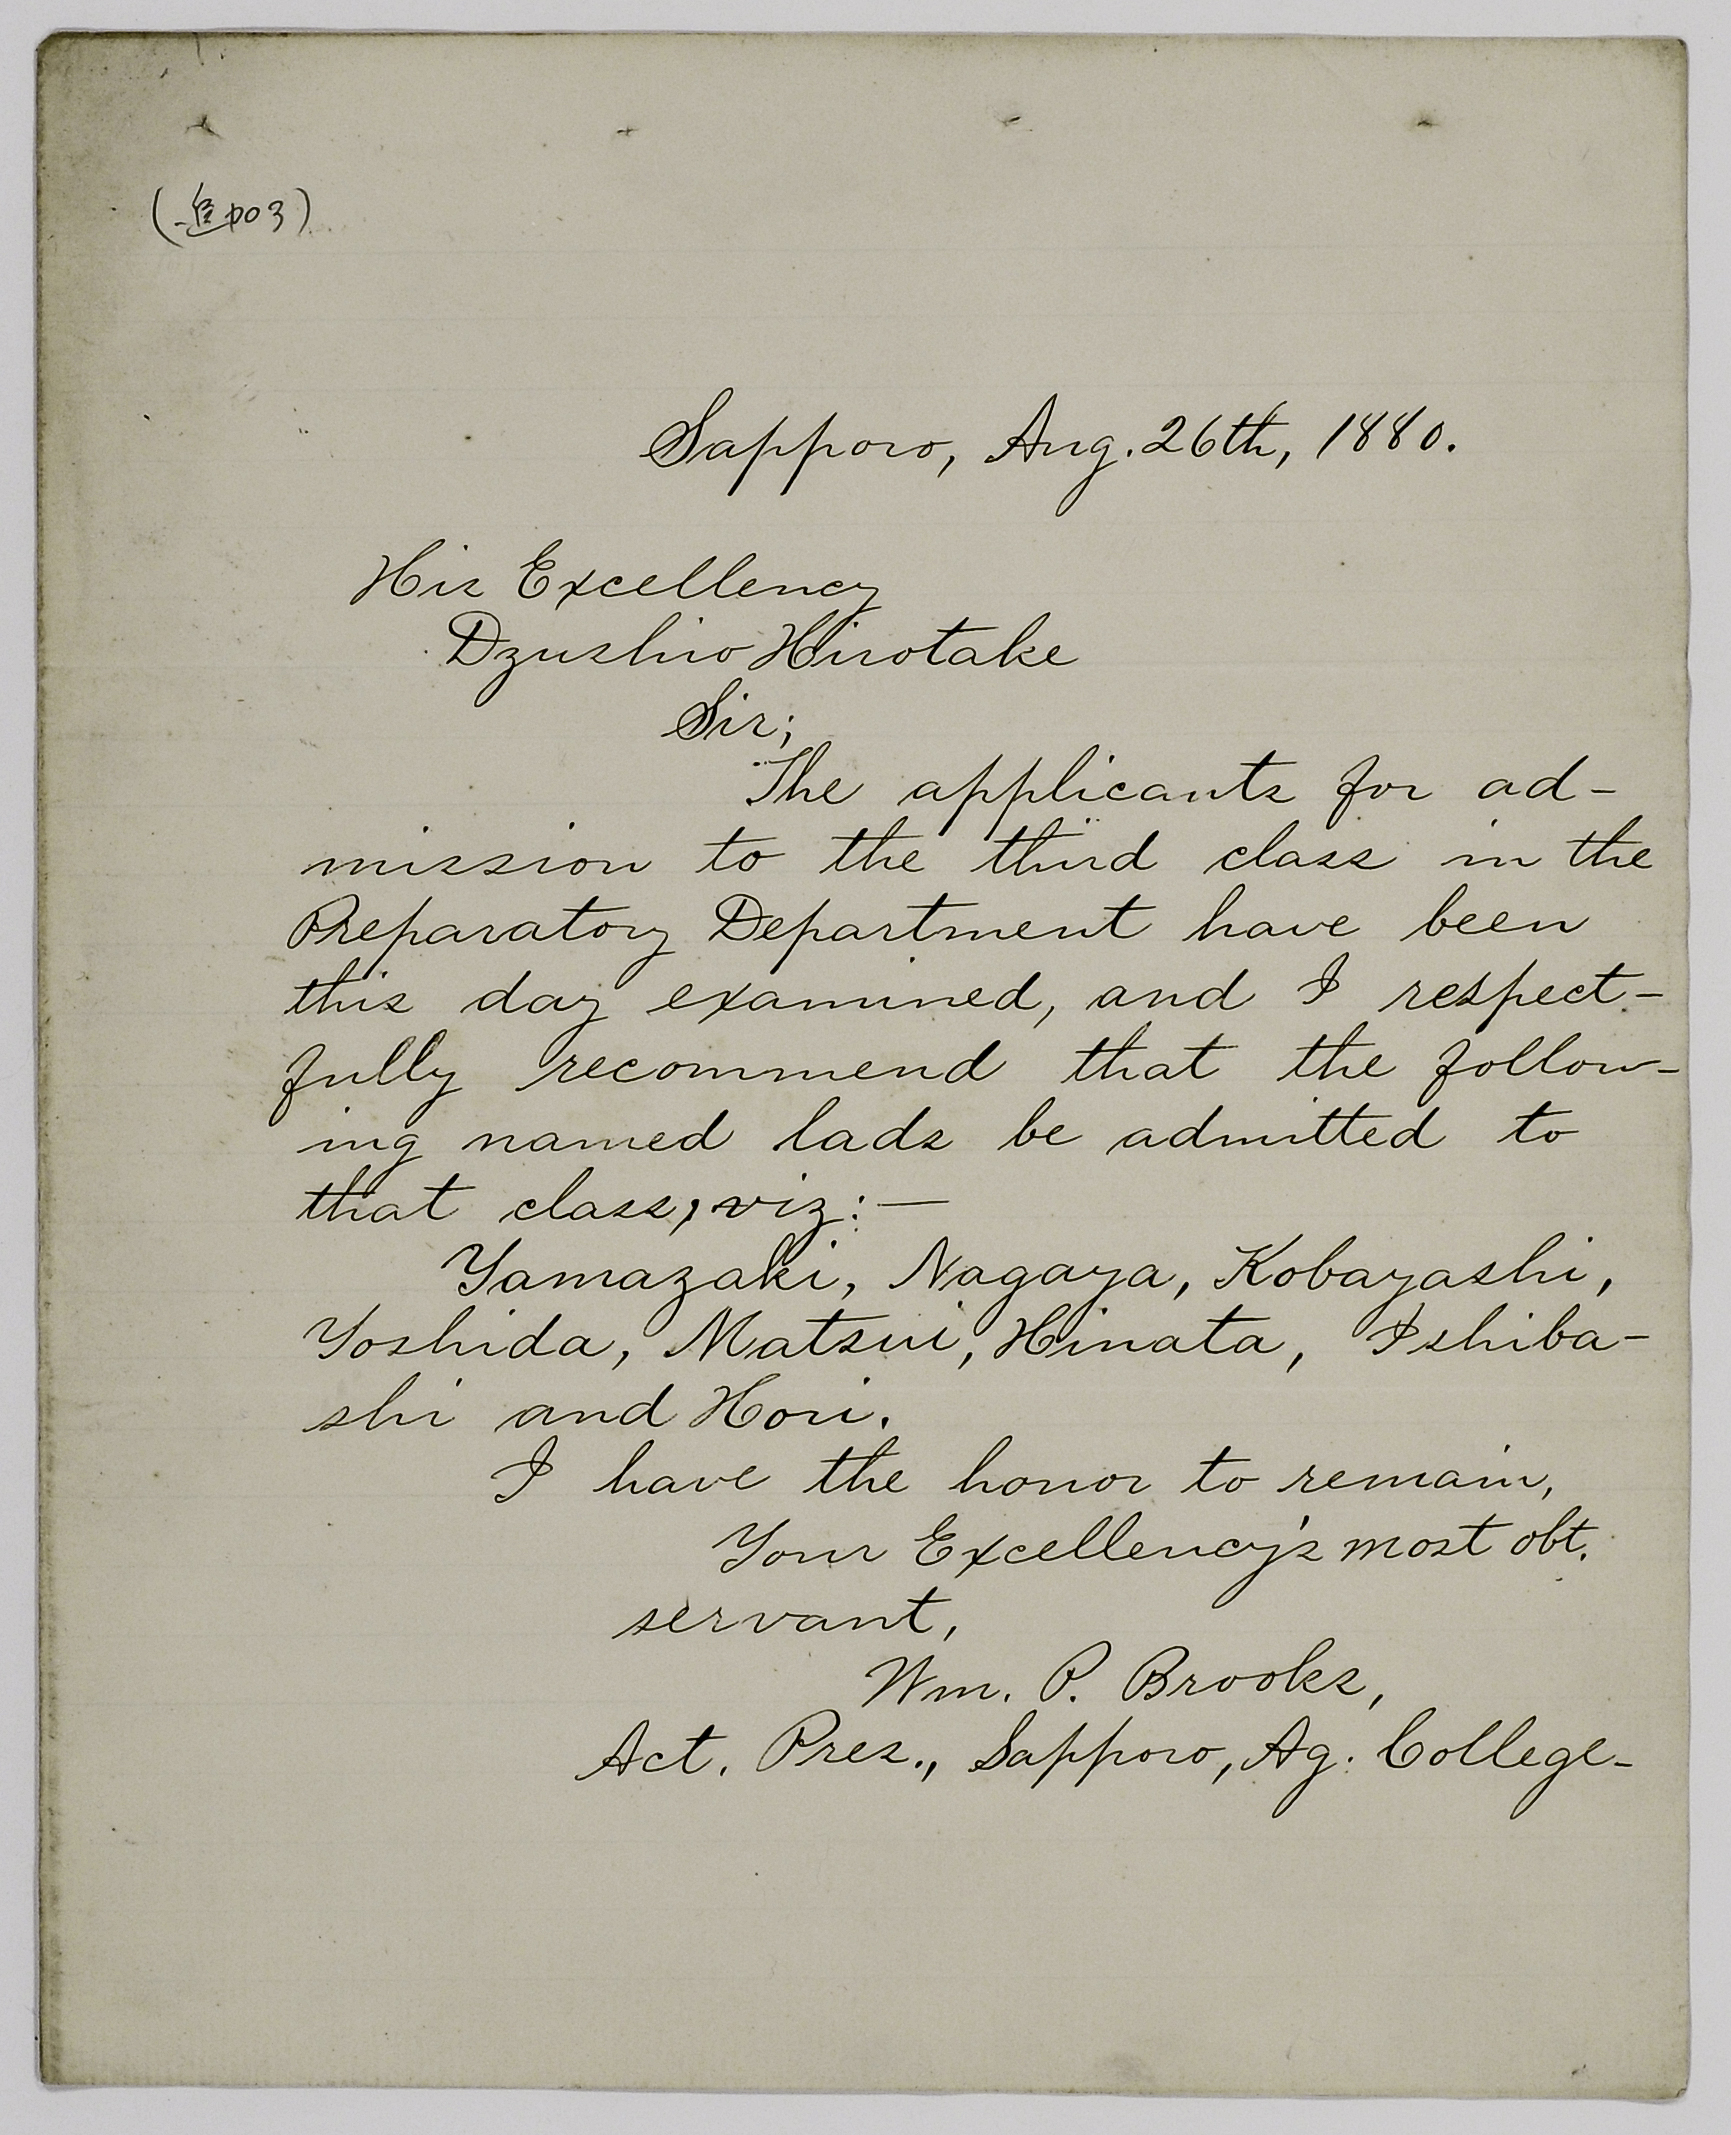 (追加03)
Sapporo, Aug. 26th, 1880.
His Excellency
Dzushio Hirotake
Sir;
The applicants for ad-
mission to the third class in the
Preparatory Department have been
this day examined, and I respect-
fully recommend that the follow-
ing named lads be admitted to
that class, viz:—
Yamazaki, Nagaya, Kobayashi,
Yoshida, Matsui, Hinata, Ishiba-
shi and Hori.
I have the honor to remain,
Your Excellency's most obt.
servant,
Wm. P. Brooks,
Act. Pres., Sapporo, Ag. College-